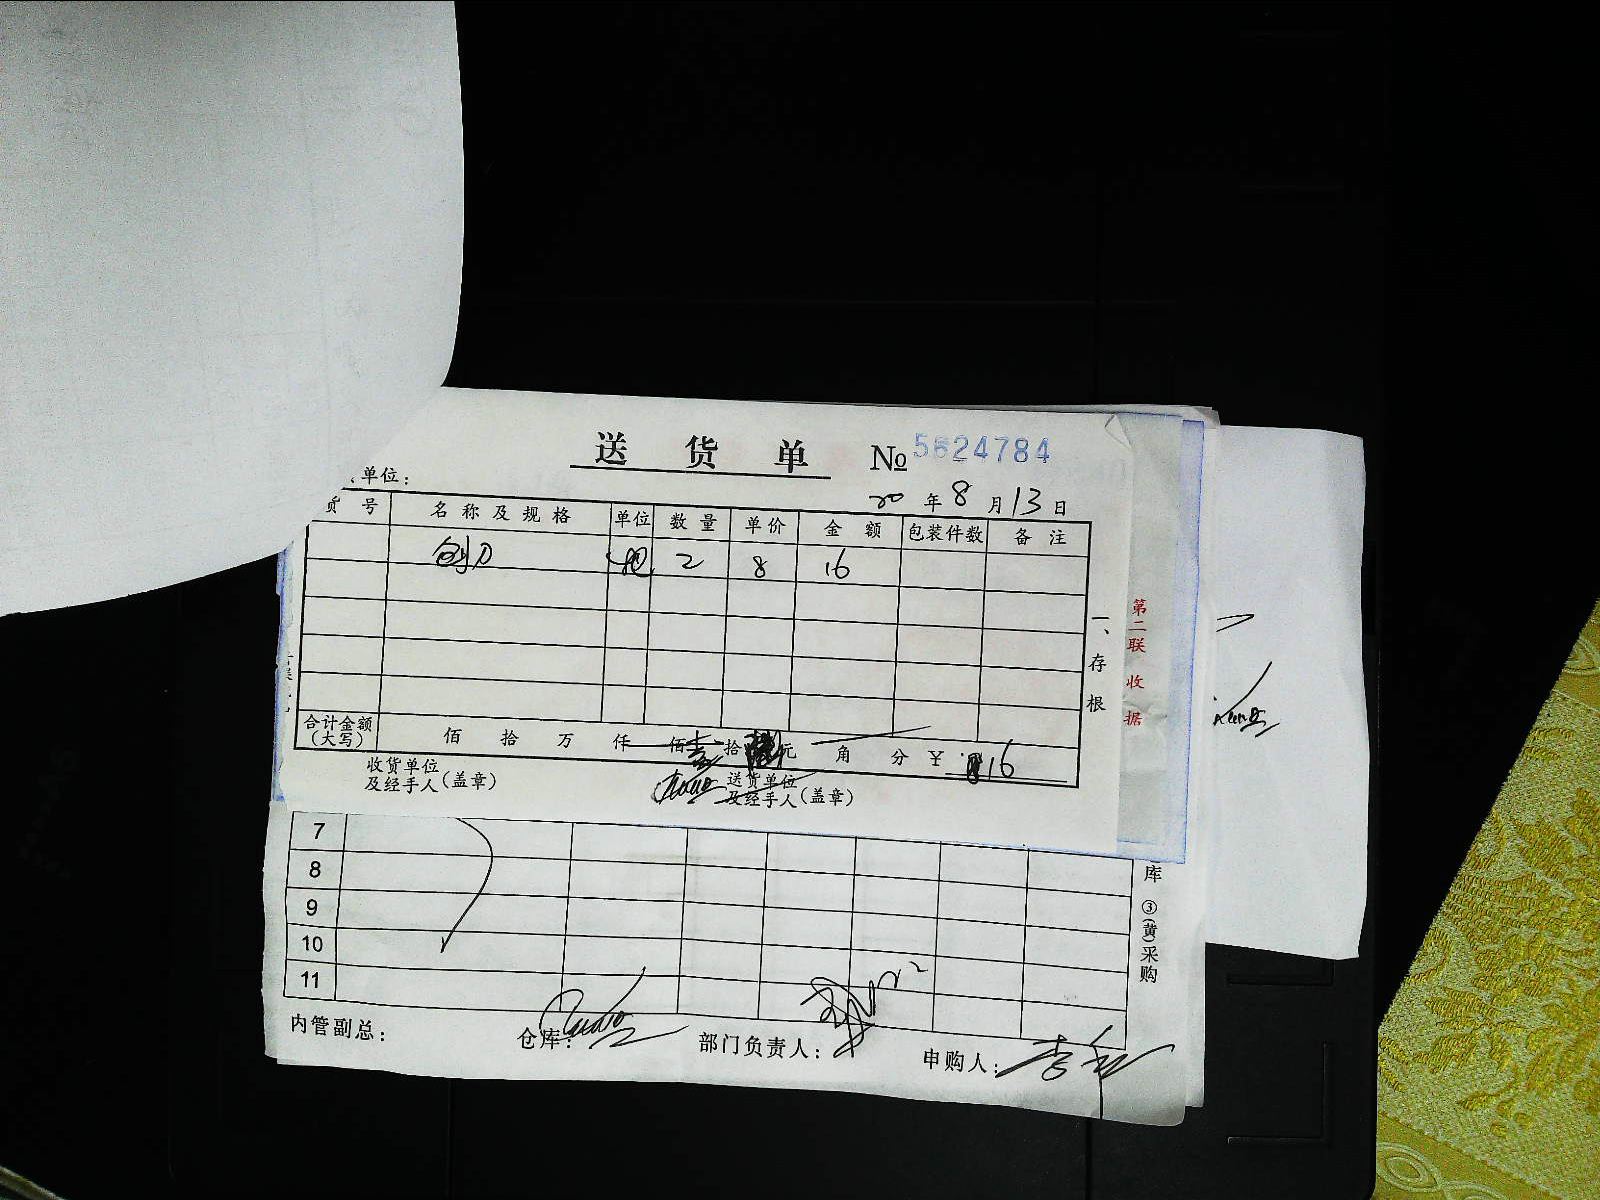 送 货 单 № 5624784
单位：
20 年 8 月 13 日
货 号 名 称 及 规 格 单位 数 量 单 价 金 额 包装件数 备 注
刨刀 把 2 8 16
一、存根
第二联 收据
合计金额（大写） 佰 拾 万 仟 佰 壹 拾 元 角 分 ￥ 16
收货单位及经手人（盖章） 送货单位及经手人（盖章）
7
8
9
10
11
库 ③(黄)采购
内管副总： 仓库： 部门负责人： 申购人：